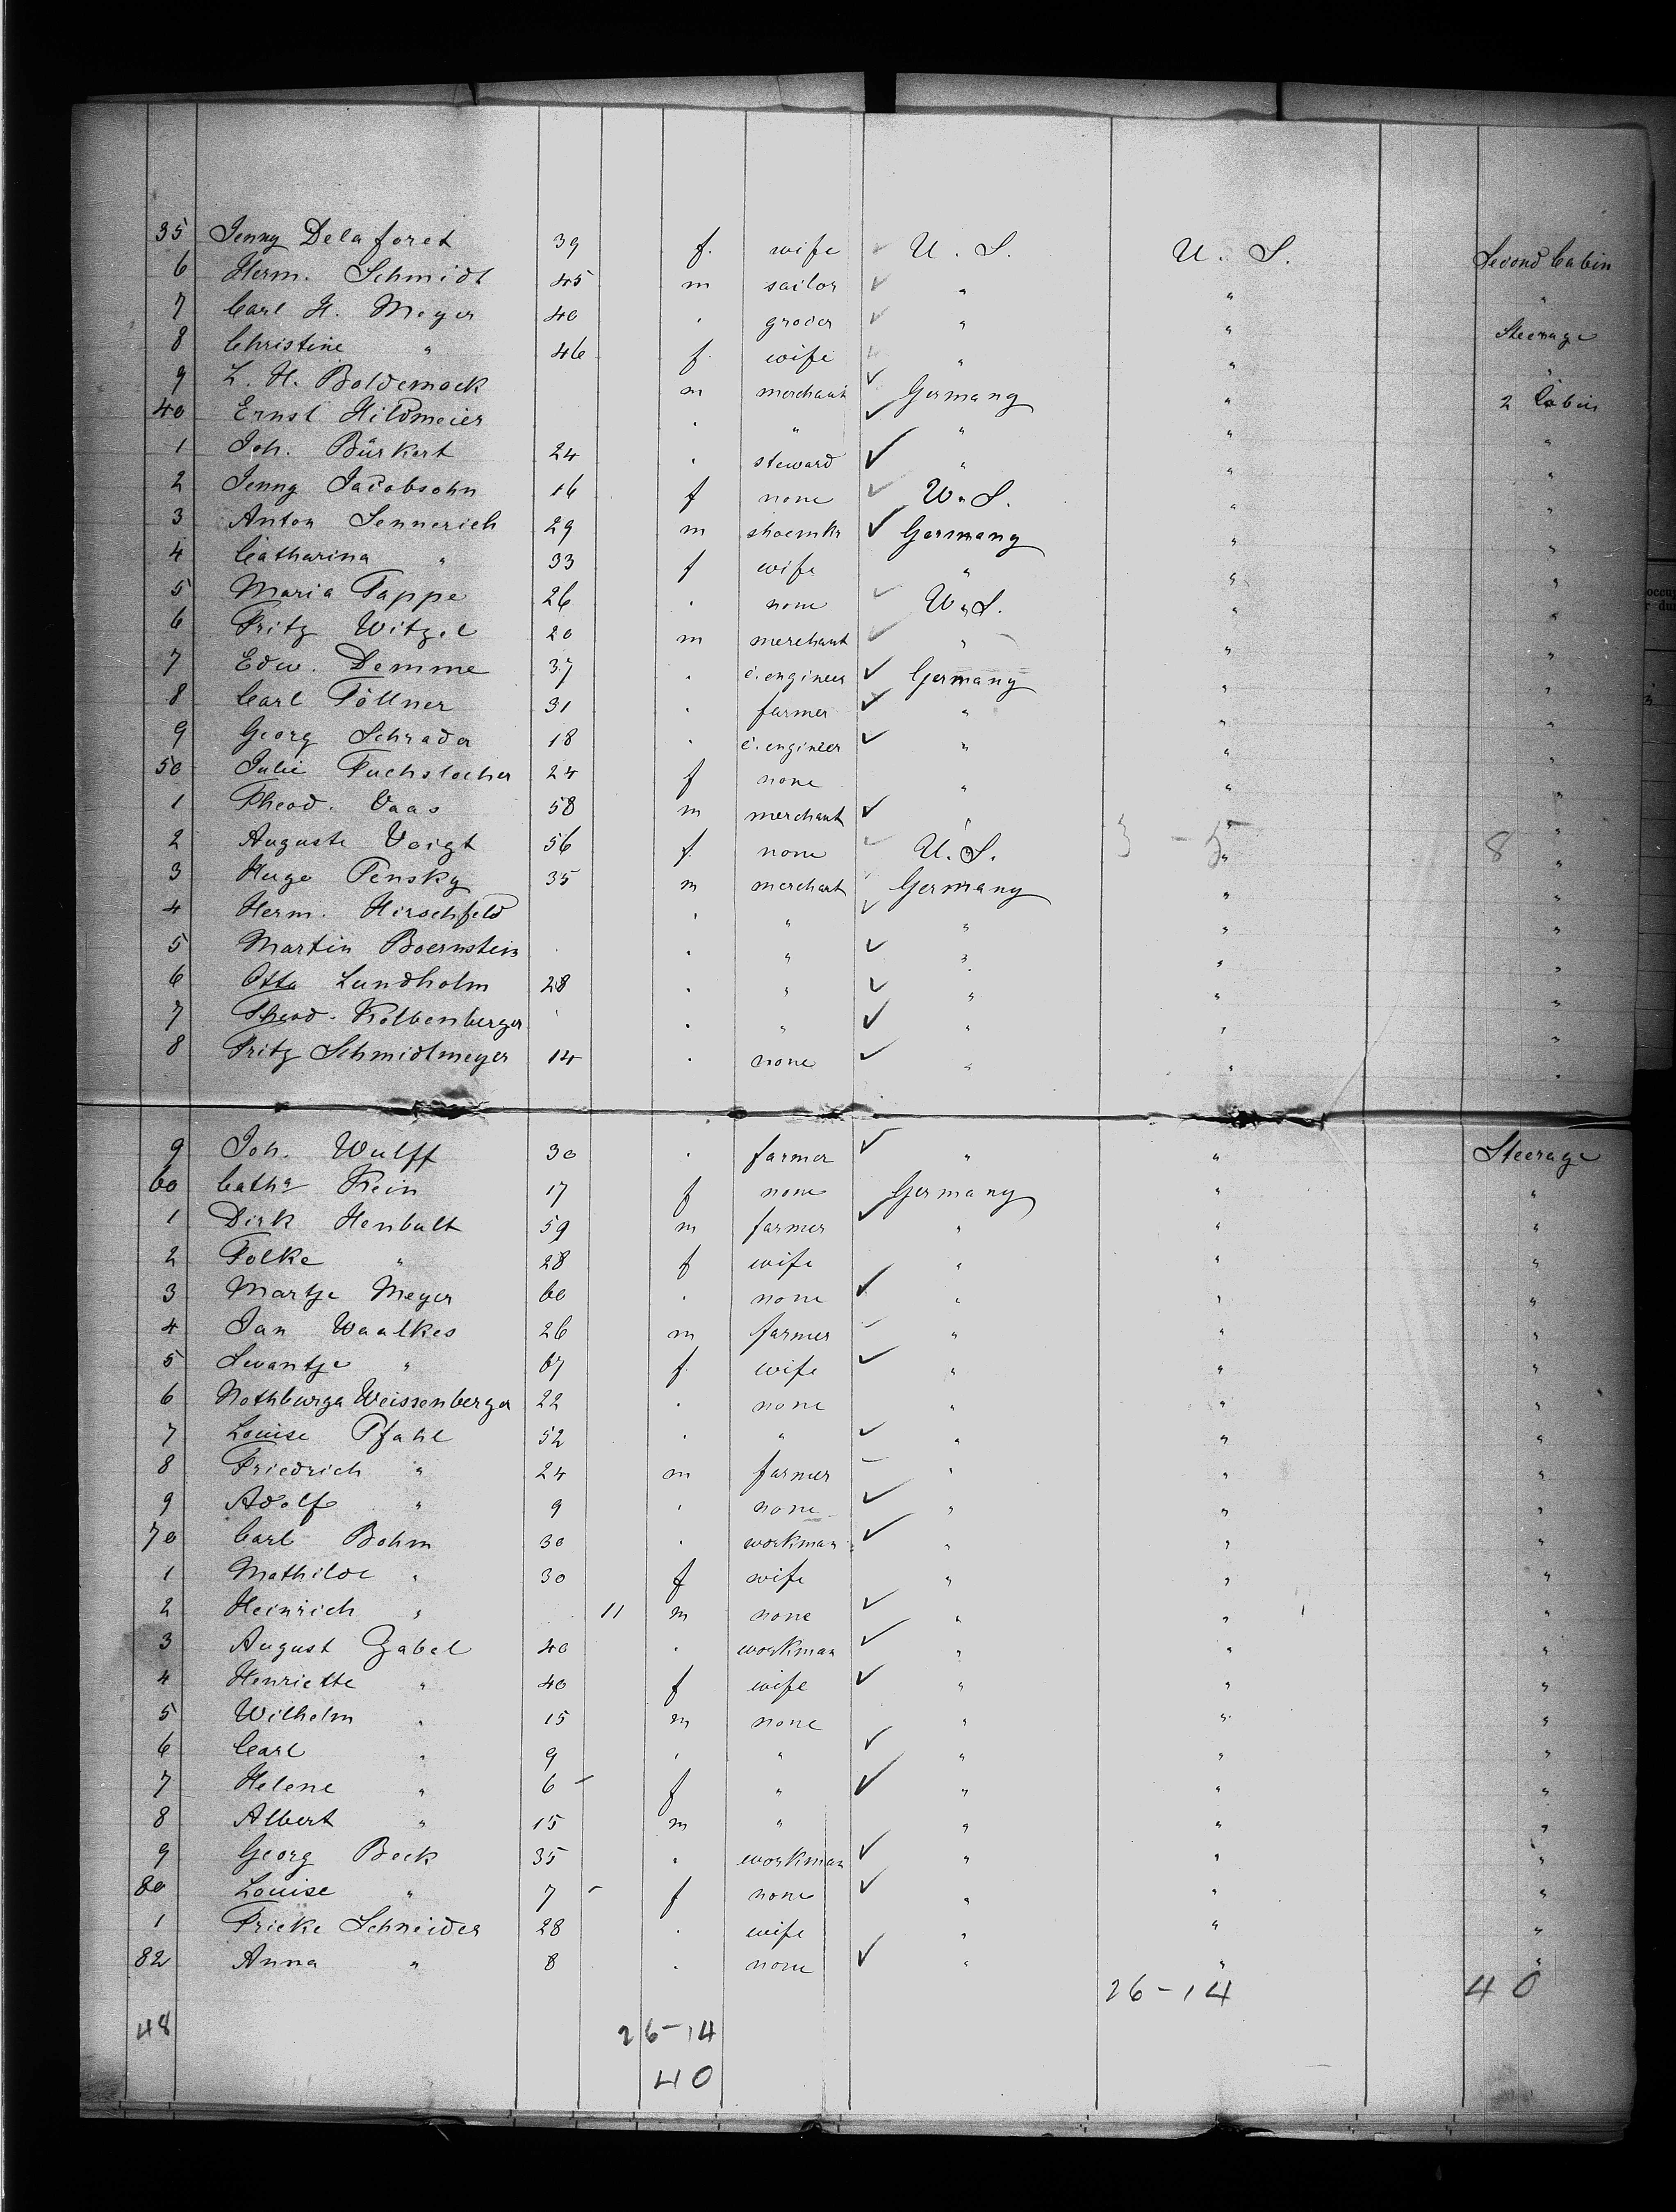 35 Jenny Delaforet 39 f. wife U. S. U. S. Second Cabin
6 Herm. Schmidt 45 m sailor " " "
7 Carl H. Meyer 40 " grocer " " Steerage
8 Christine " 46 f. wife " " "
9 L. H. Boldemack m merchant Germany " 2 Cabin
40 Ernst Hildmeier " " " " "
1 Joh. Bürkert 24 " steward " " "
2 Jenny Jacobsohn 16 f none U. S. " "
3 Anton Sennerich 29 m shoemkr Germany " "
4 Catharina " 33 f wife " " "
5 Maria Tappe 26 " none U. S. " "
6 Fritz Witzel 20 m merchant " " "
7 Edw. Demme 37 " c. engineer Germany " "
8 Carl Töllner 31 " farmer " " "
9 Georg Schrader 18 " c. engineer " " "
50 Julie Fuchslocher 24 f none " " "
1 Theod. Vaas 58 m merchant " " "
2 Auguste Voigt 56 f. none U. S. 3 - 5 " 8 "
3 Hugo Pensky 35 m merchant Germany " "
4 Herm. Hirschfeld " " " " "
5 Martin Boernstein " " " " "
6 Otto Lundholm 28 " " " " "
7 Theod. Kolbenberger " " " " "
8 Fritz Schmidtmeyer 14 " none " " "
9 Joh. Wulff 30 " farmer " " Steerage
60 Catha Rein 17 f none Germany " "
1 Dirk Henbult 59 m farmer " " "
2 Folke " 28 f wife " " "
3 Martje Meyer 60 " none " " "
4 Jan Waalkes 26 m farmer " " "
5 Swantje " 67 f. wife " " "
6 Nothburga Weissenberger 22 " none " " "
7 Louise Pfahl 52 " " " " "
8 Friedrich " 24 m farmer " " "
9 Adolf " 9 " none " " "
70 Carl Bohm 30 " workman " " "
1 Mathilde " 30 f wife " " "
2 Heinrich " 11 m none " " "
3 August Zabel 40 " workman " " "
4 Henriette " 40 f wife " " "
5 Wilhelm " 15 m none " " "
6 Carl " 9 " " " " "
7 Helene " 6 f " " " "
8 Albert " 15 m " " " "
9 Georg Beck 35 " workman " " "
80 Louise " 7 f none " " "
1 Fricke Schneider 28 " wife " " "
82 Anna " 8 " none " " "
26-14 40
48 26-14
40